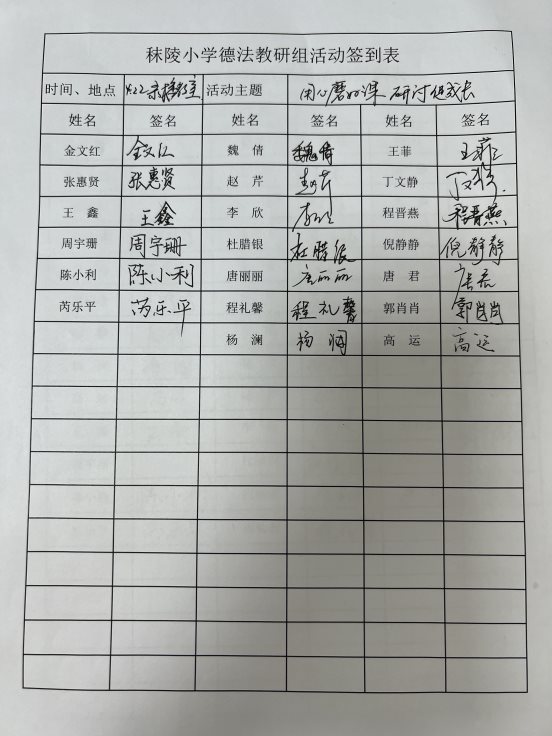 秣陵小学德法教研组活动签到表
时间、地点 4.22 录播教室 活动主题 用心磨好课 研讨促成长
姓名 签名 姓名 签名 姓名 签名
金文红 金文红 魏 倩 魏倩 王菲 王菲
张惠贤 张惠贤 赵 芹 赵芹 丁文静 丁文静
王 鑫 王鑫 李 欣 李欣 程晋燕 程晋燕
周宇珊 周宇珊 杜腊银 杜腊银 倪静静 倪静静
陈小利 陈小利 唐丽丽 唐丽丽 唐 君 唐君
芮乐平 芮乐平 程礼馨 程礼馨 郭肖肖 郭肖肖
杨 澜 杨澜 高 运 高运